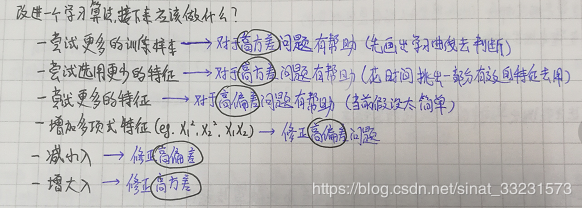 改进一个学习算法,接下来应该做什么?
- 尝试更多的训练样本 → 对于高方差问题有帮助 (先画出学习曲线去判断)
- 尝试选用更少的特征 → 对于高方差问题有帮助 (花时间挑出一部分有效的特征去用)
- 尝试更多的特征 → 对于高偏差问题有帮助 (当前假设太简单)
- 增加多项式特征 (eg. X₁², X₂², X₁X₂) → 修正高偏差问题
- 减小λ → 修正高偏差
- 增大λ → 修正高方差
https://blog.csdn.net/sinat_33231573